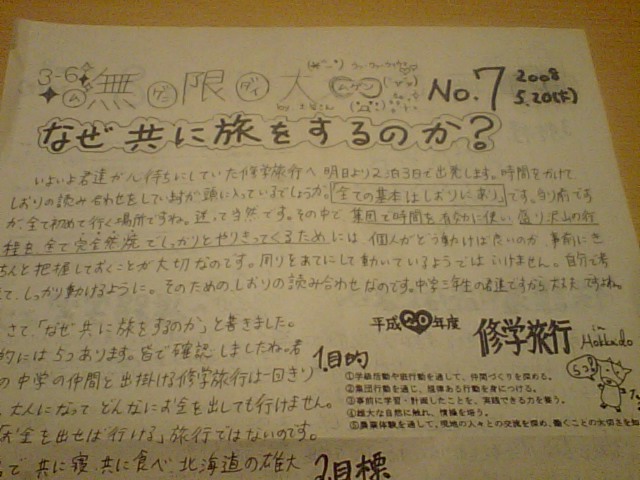 3-6 無限大 No.7 2008 5.20(火)
ム ゲン ダイ
ムゲン
なぜ共に旅をするのか?
いよいよ君達が待ちにしていた修学旅行へ 明日より2泊3日で出発します。時間をかけて
しおりの読み合わせをしていますが頭に入っているでしょうか。「全ての基本はしおりにあり」です。当り前です
が、全て初めて行く場所ですね。迷って当然です。その中で、集団で時間を有効に使い 盛り沢山の行
程を、全て完全燃焼でしっかりとやりきってくるためには、個人がどう動けば良いのか、事前にき
ちんと把握しておくことが大切なのです。周りをあてにして動いているようではいけません。自分で考
えて、しっかり動けるように。そのためのしおりの読み合わせなのです。中学三年生の君達ですから、大丈夫ですよね。
さて、「なぜ共に旅をするのか」と書きました。
的には5つあります。皆で確認しましたね。君
の中学の仲間と出掛ける修学旅行は一回きり
、大人になって どんなにお金を出しても行けません。
「お金を出せば行ける」旅行ではないのです。
で 共に寝、共に食べ、北海道の雄大
平成20年度 修学旅行 in Hokkaido
1.目的
①学級活動や旅行動を通して、仲間づくりを深める。
②集団行動を通じ、規律ある行動を身につける。
③事前に学習・計画したことを、実践できる力を養う。
④雄大な自然に触れ、情操を培う。
⑤農業体験を通して、現地の人々との交流を深め、働くことの大切さを知
5つ!
2.目標